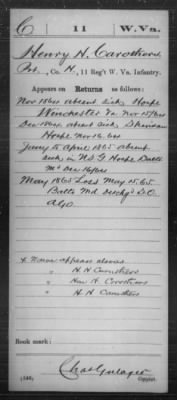 C | 11 | W. Va.
Henry H. Carothers
Pvt., Co. H, 11 Reg't W. Va. Infantry.
Appears on Returns as follows:
Nov 1864 absent sick, Hosp
Winchester Va. Nov 15/64
Dec 1864 absent sick, Sheridan
Hosp. Nov 16.64
Jany to April 1865 absent
sick in U.S.G Hosp. Balto
Md Dec 16/64
May 1865 Loss May 15.65.
Balto Md dischgd S.O.
also
x Name appears above
" H. H Caruthers
" Hen H. Crothers
" H H Caruthers
Book mark:
(546) Copyist.